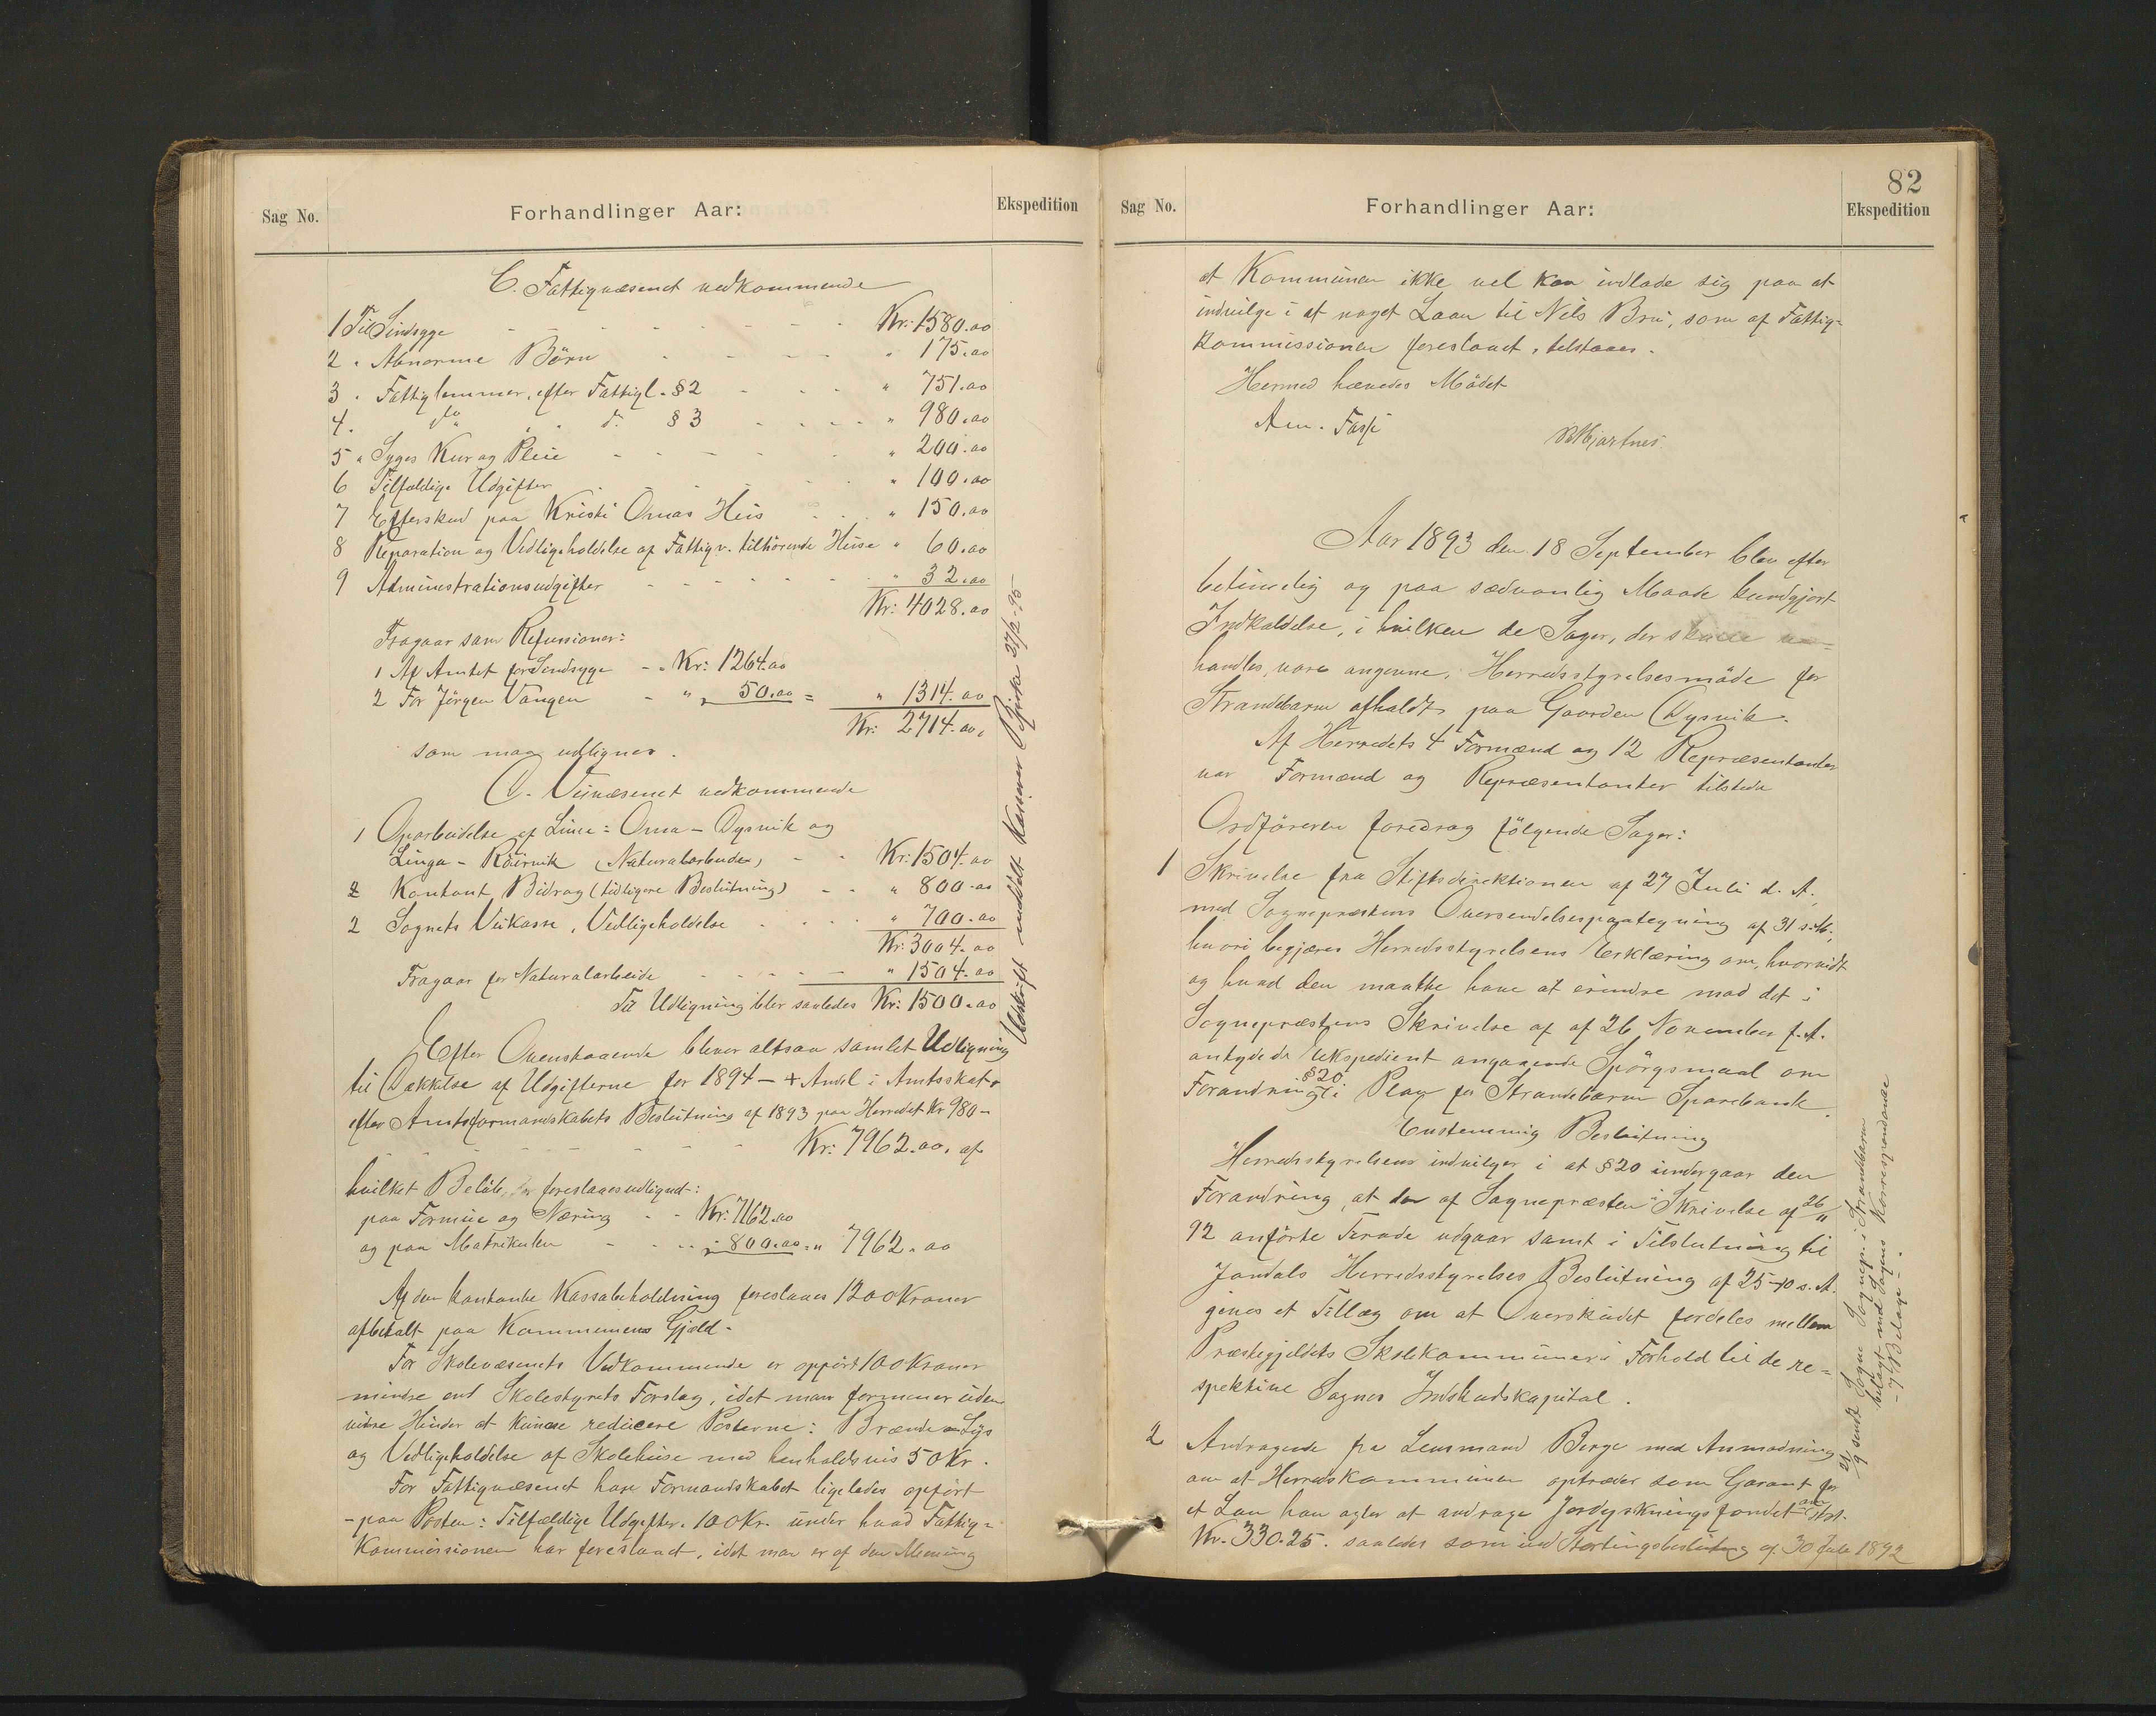 Sag No.
Forhandlinger Aar:
Ekspedition
C. Fattigvæsenet vedkommende
1 Til Sindsyge - - - Kr: 1580.00
2 " Abnorme Börn - - - " 175.00
3 " Fattiglemmer, efter Fattigl. §2 - - " 751.00
4. do d. §3 - - - " 980.00
5 " Syges Kur og Pleie - - - " 200.00
6 Tilfældige Udgifter - - - " 100.00
7 Efterskud paa Kristi Omas Hus - - " 150.00
8 Reparation og Vedligeholdelse af Fattigv. tilhörende Huse " 60.00
9 Administrationsudgifter - - - " 32.00
Kr: 4028.00
Fragaar som Refusioner:
1 Af Amtet for Sindsyge - - Kr: 1264.00
2 For Jörgen Vangen - " 50.00 = " 1314.00
Kr: 2714.00,
som maa udlignes.
D. Veivæsenet vedkommende
1 Oparbeidelse af Linie: Oma - Dysvik og
Linga - Röirvik (Naturalarbeide) - - Kr: 1504.00
2 Kontant Bidrag (tidligere Beslutning) - - " 800.00
2 Sognets Veikasse, Vedligeholdelse - - " 700.00
Kr: 3004.00
Fragaar for Naturalarbeide - - - " 1504.00
Til Udligning blir saaledes Kr: 1500.00
Efter Ovenstaaende bliver altsaa samlet Udligning
til Dækkelse af Udgifterne for 1894 - + Andel i Amtsskat
efter Amtsformandskabets Beslutning af 1893 paa Herredet Kr 980 -
- - - Kr: 7962.00. af
hvilket Belöb, foreslaaes udlignet:
paa Formue og Næring - - Kr: 7162.00
og paa Matrikulen - - - " 800.00 = " 7962.00
Af den kontante Kassabeholdning foreslaaes 1200 Kroner
afbetalt paa Kommunens Gjæld.
For Skolevæsenets Vedkommende er opfört 100 Kroner
mindre end Skolestyrets Forslag, idet man formener uden
videre Hinder at kunne reducere Posterne: Brænde - Lys
og Vedligeholdelse af Skolehuse med henholdsvis 50 Kr.
For Fattigvæsenet have Formandskabet ligeledes opfört
- paa Posten: Tilfældige Udgifter. 100 Kr. under hvad Fattig-
Kommissionen har foreslaaet, idet man er af den Mening
Udskrift meddelt Kasserer Bjirke 27/2-95
82
Sag No.
Forhandlinger Aar:
Ekspedition
at Kommunen ikke vel kan indlade sig paa at
indvilge i at noget Laan til Nils Bru, som af Fattig-
kommissionen foreslaaet, tilstaaes.
Hermed hævedes Mödet
Am. Fosse
Mjartnes
Aar 1893 den 18 September blev efter
betimelig og paa sædvanlig Maade kundgjort
Indkaldelse, i hvilken de Sager, der skulle
handles, vare angivne, Herredsstyrelsesmöde for
Strandebarm afholdt paa Gaarden Dysvik.
Af Herredets 4 Formænd og 12 Repræsentanter
var Formænd og Repræsentanter tilstede
Ordföreren foredrog fölgende Sager:
1 Skrivelse fra Stiftsdirektionen af 27 Juli d. A.
med Sognepræstens Oversendelsespaategning af 31 s. M.,
hvori begjæres Herredsstyrelsens Erklæring om, hvorvidt
og hvad den maatte have at erindre mod det i
Sognepræstens Skrivelse af af 26 November f. A.
antydede Ekspedient angaaende Spörgsmaal om
Forandring i §20 Plan for Strandebarm Sparebank.
Enstemmig Beslutning
Herredsstyrelsens indvilger i at §20 undergaar den
Forandring, at den af Sognepræsten i Skrivelse af 26/11
92 anförte Tirade udgaar samt i Tilslutning til
Jondals Herredsstyrelses Beslutning af 25-10 s. A.
gives et Tillæg om at Overskudet fordeles mellem
Præstegjeldets Skolekommuner i Forhold til de re-
spektive Sognes Indskudskapital.
2 Andragende fra Lensmand Berge med Anmodning
om at Herredskommunen optræder som Garant for
et Laan han agter at andrage Jorddyrkningsfondet om
Kr. 330.25. saaledes som ved Stortingsbeslutning af 30 Juli 1892
21/9 sendt Sognepr. i Strandbarm
bilagt med Sagens Korrespondance
- 7 Bilage -